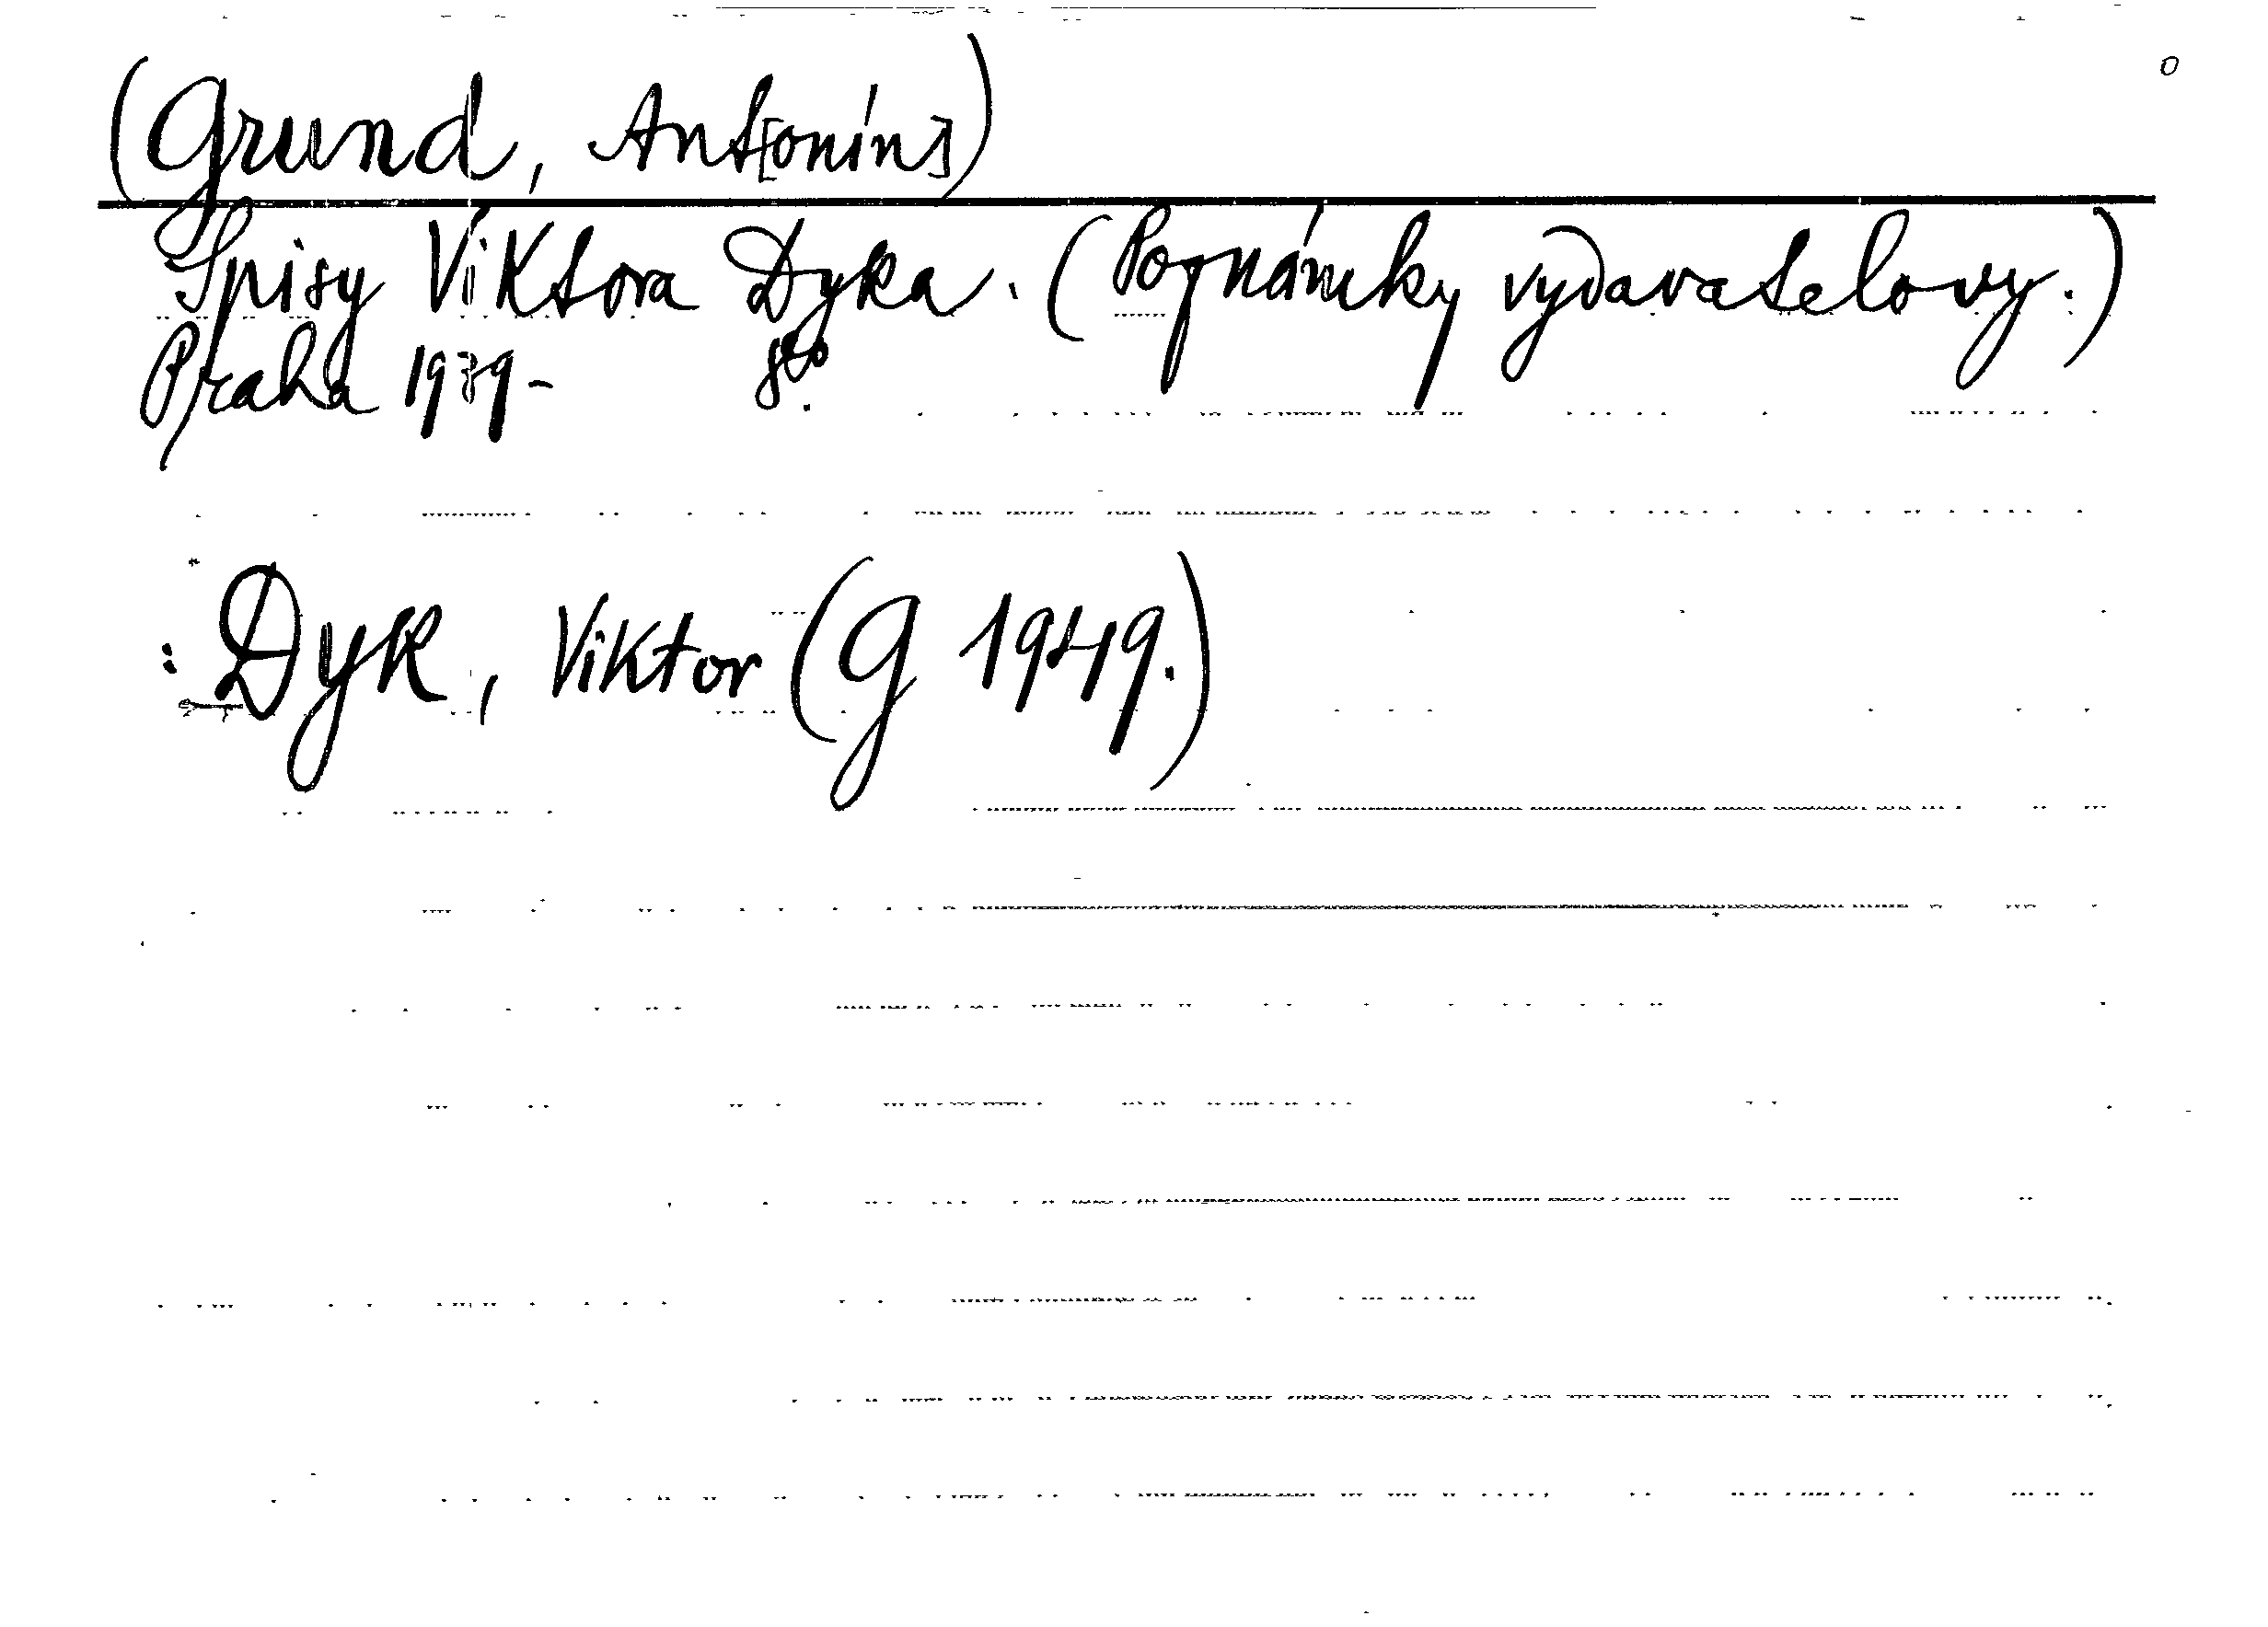 (Grund, Ant[onín])
Spisy Viktora Dyka. (Poznámky vydavatelovy.)
Praha 1939- 8°.
: Dyk, Viktor (G 1949.)